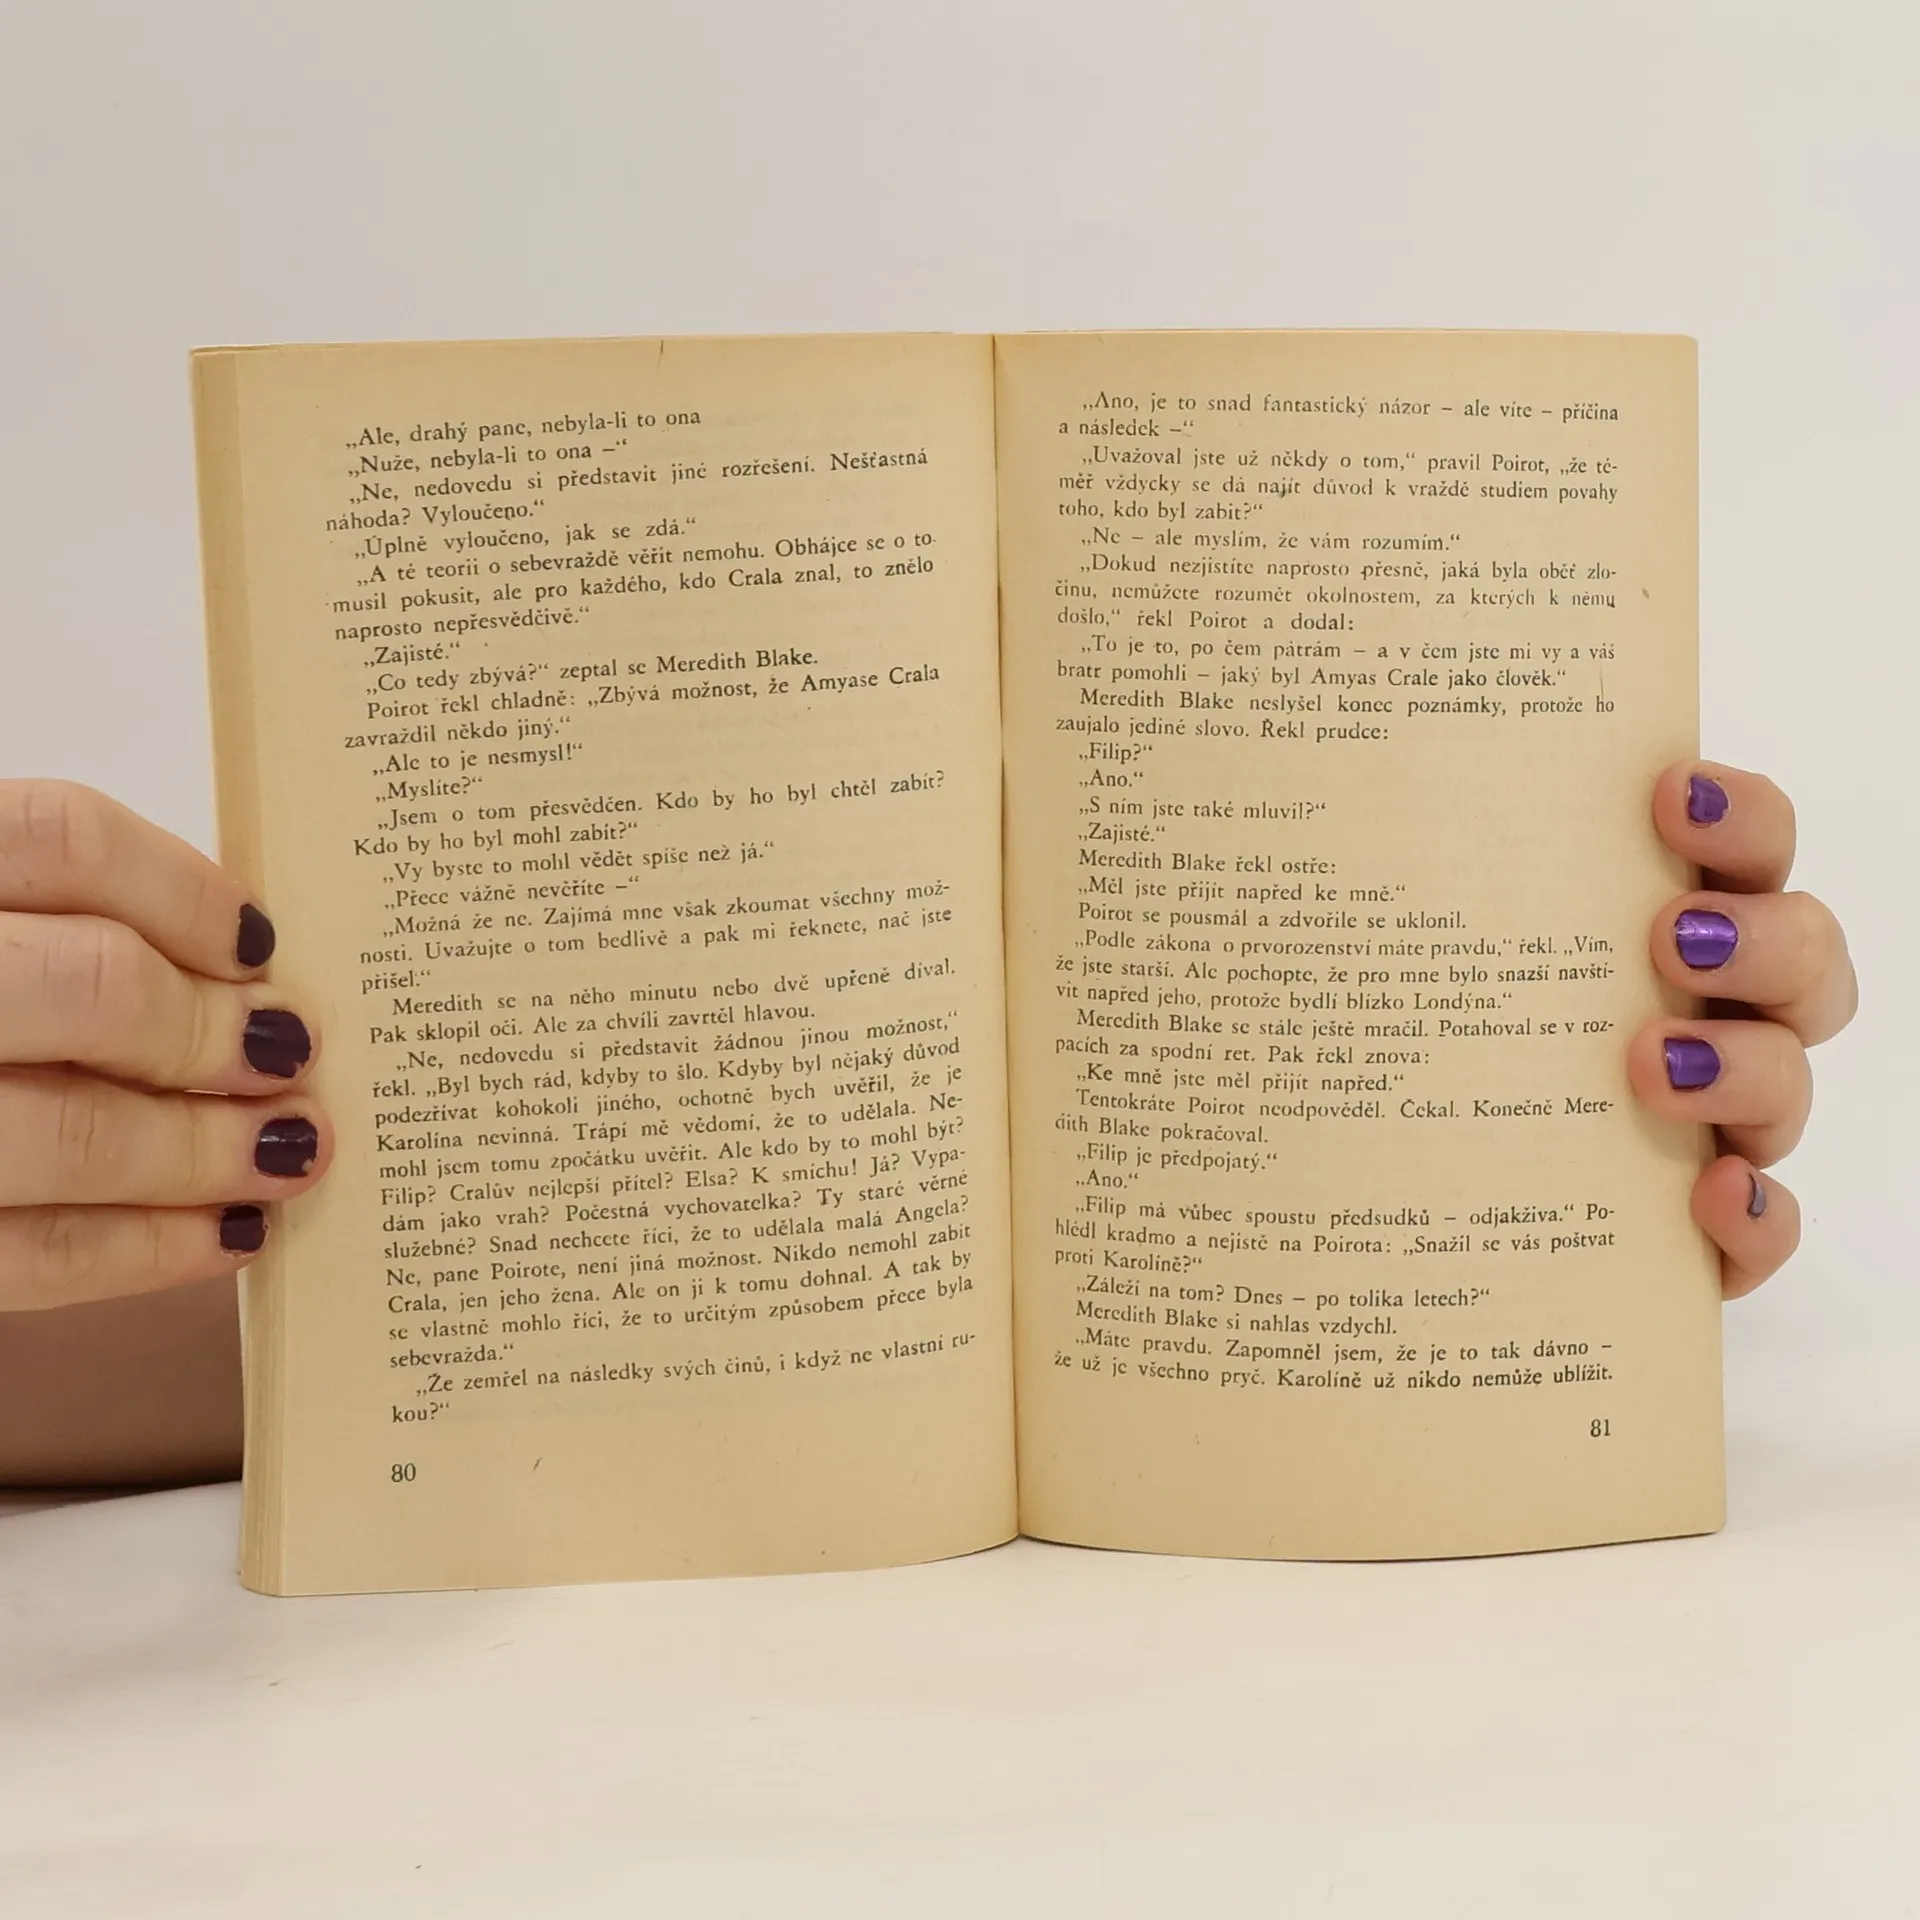 „Ale, drahý pane, nebyla-li to ona
„Nuže, nebyla-li to ona –“
„Ne, nedovedu si představit jiné rozřešení. Nešťastná
náhoda? Vyloučeno.“
„Úplně vyloučeno, jak se zdá.“
„A té teorii o sebevraždě věřit nemohu. Obhájce se o to
musil pokusit, ale pro každého, kdo Crala znal, to znělo
naprosto nepřesvědčivě.“
„Zajisté.“
„Co tedy zbývá?“ zeptal se Meredith Blake.
Poirot řekl chladně: „Zbývá možnost, že Amyase Crala
zavraždil někdo jiný.“
„Ale to je nesmysl!“
„Myslíte?“
„Jsem o tom přesvědčen. Kdo by ho byl chtěl zabít?
Kdo by ho byl mohl zabít?“
„Vy byste to mohl vědět spíše než já.“
„Přece vážně nevěříte –“
„Možná že ne. Zajímá mne však zkoumat všechny mož-
nosti. Uvažujte o tom bedlivě a pak mi řeknete, nač jste
přišel.“
Meredith se na něho minutu nebo dvě upřeně díval.
Pak sklopil oči. Ale za chvíli zavrtěl hlavou.
„Ne, nedovedu si představit žádnou jinou možnost,“
řekl. „Byl bych rád, kdyby to šlo. Kdyby byl nějaký důvod
podezřívat kohokoli jiného, ochotně bych uvěřil, že je
Karolína nevinná. Trápí mě vědomí, že to udělala. Ne-
mohl jsem tomu zpočátku uvěřit. Ale kdo by to mohl být?
Filip? Cralův nejlepší přítel? Elsa? K smíchu! Já? Vypa-
dám jako vrah? Počestná vychovatelka? Ty staré věrné
služebné? Snad nechcete říci, že to udělala malá Angela?
Ne, pane Poirote, není jiná možnost. Nikdo nemohl zabít
Crala, jen jeho žena. Ale on ji k tomu dohnal. A tak by
se vlastně mohlo říci, že to určitým způsobem přece byla
sebevražda.“
„Že zemřel na následky svých činů, i když ne vlastní ru-
kou?“
80
„Ano, je to snad fantastický názor – ale víte – příčina
a následek –“
„Uvažoval jste už někdy o tom,“ pravil Poirot, „že té-
měř vždycky se dá najít důvod k vraždě studiem povahy
toho, kdo byl zabit?“
„Ne – ale myslím, že vám rozumím.“
„Dokud nezjistíte naprosto přesně, jaká byla oběť zlo-
činu, nemůžete rozumět okolnostem, za kterých k němu
došlo,“ řekl Poirot a dodal:
„To je to, po čem pátrám – a v čem jste mi vy a váš
bratr pomohli – jaký byl Amyas Crale jako člověk.“
Meredith Blake neslyšel konec poznámky, protože ho
zaujalo jediné slovo. Řekl prudce:
„Filip?“
„Ano.“
„S ním jste také mluvil?“
„Zajisté.“
Meredith Blake řekl ostře:
„Měl jste přijít napřed ke mně.“
Poirot se pousmál a zdvořile se uklonil.
„Podle zákona o prvorozenství máte pravdu,“ řekl. „Vím,
že jste starší. Ale pochopte, že pro mne bylo snazší navští-
vit napřed jeho, protože bydlí blízko Londýna.“
Meredith Blake se stále ještě mračil. Potahoval se v roz-
pacích za spodní ret. Pak řekl znova:
„Ke mně jste měl přijít napřed.“
Tentokráte Poirot neodpověděl. Čekal. Konečně Mere-
dith Blake pokračoval.
„Filip je předpojatý.“
„Ano.“
„Filip má vůbec spoustu předsudků – odjakživa.“ Po-
hlédl kradmo a nejistě na Poirota: „Snažil se vás poštvat
proti Karolíně?“
„Záleží na tom? Dnes – po tolika letech?“
Meredith Blake si nahlas vzdychl.
„Máte pravdu. Zapomněl jsem, že je to tak dávno –
že už je všechno pryč. Karolíně už nikdo nemůže ublížit.
81